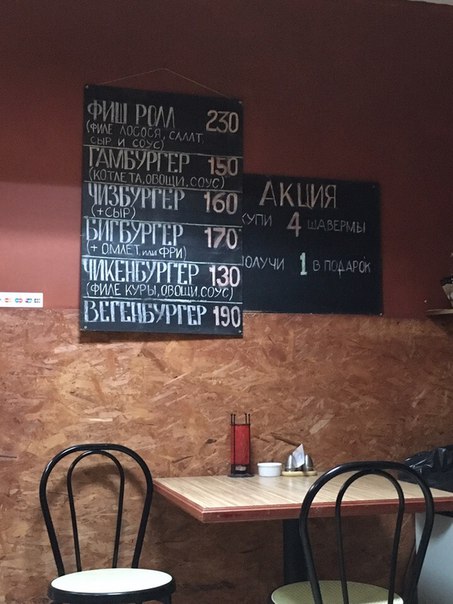 ФИШ РОЛЛ 230
(ФИЛЕ ЛОСОСЯ, САЛАТ,
СЫР И СОУС)
ГАМБУРГЕР 150
(КОТЛЕТА, ОВОЩИ, СОУС)
ЧИЗБУРГЕР 160
(+СЫР)
БИГБУРГЕР 170
(+ ОМЛЕТ ИЛИ ФРИ)
ЧИКЕНБУРГЕР 130
(ФИЛЕ КУРЫ, ОВОЩИ, СОУС)
ВЕГЕНБУРГЕР 190
АКЦИЯ
КУПИ 4 ШАВЕРМЫ
ОЛУЧИ 1 В ПОДАРОК